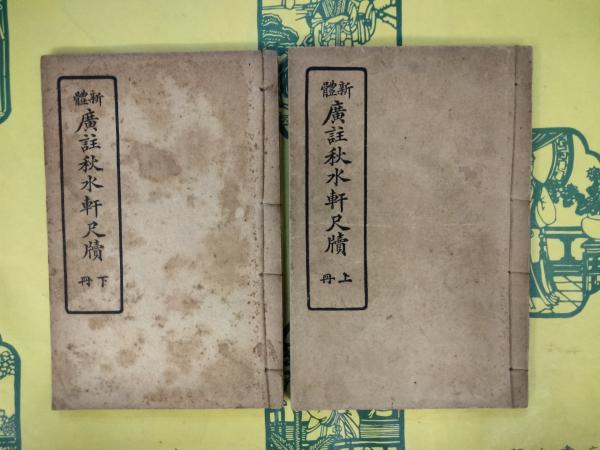 新體
廣註秋水軒尺牘
下冊
新體
廣註秋水軒尺牘
上冊